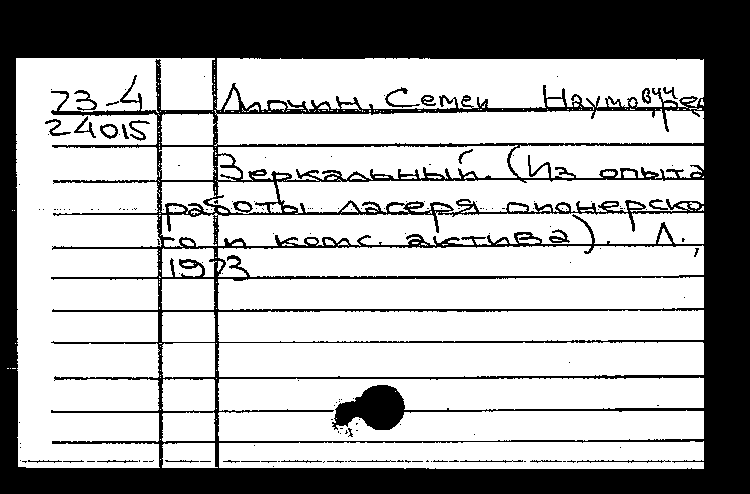 73-4
24015
Липчин, Семен Наумович, ред
Зеркальный. (Из опыта
работы лагеря пионерско
го и комс. актива). Л.,
1973